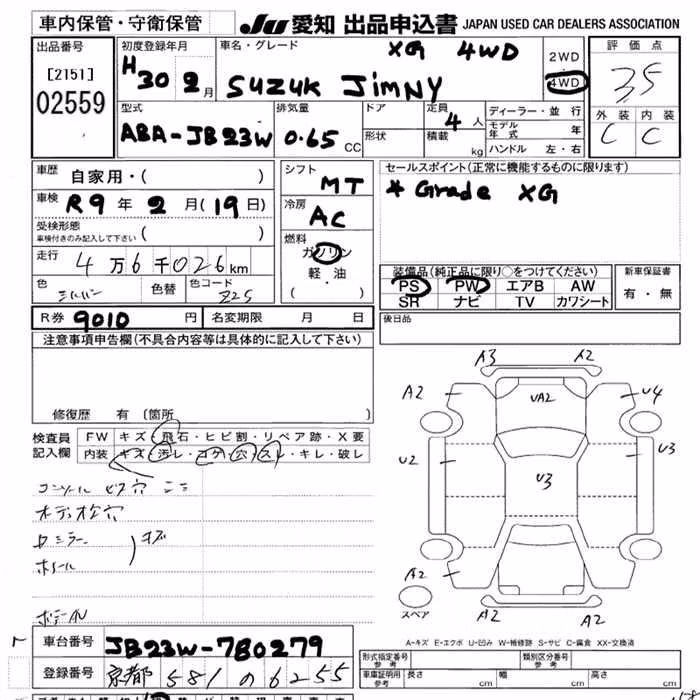 車内保管・守衛保管
JU 愛知 出品申込書 JAPAN USED CAR DEALERS ASSOCIATION
出品番号
[2151]
02559
初度登録年月
H30 2月
車名・グレード
XG 4WD
SUZUK JimNY
2WD
4WD
評価点
3.5
外装 内装
C C
型式
ABA-JB23W
排気量
0.65 CC
ドア
形状
定員
4人
積載
kg
ディーラー・並行
モデル年式 年
ハンドル 左・右
車歴
自家用・( )
車検
R9年2月(19日)
受検形態
車検付きのみ記入して下さい ( )
走行
4万6千026km
色
色替
色コード
Z2S
シフト
MT
冷房
AC
燃料
ガソリン
軽・油
( ・ )
セールスポイント(正常に機能するものに限ります)
* Grade XG
装備品(純正品に限り○をつけてください)
PS PW エアB AW
SR ナビ TV カワシート
新車保証書
有・無
R券 9010円
名変期限 月 日
後日品
注意事項申告欄(不具合内容等は具体的に記入して下さい)
修復歴 有〔箇所
検査員記入欄
FW キズ・飛石・ヒビ割・リペア跡・X要
内装 キズ・汚レ・コゲ・穴・スレ・キレ・破レ
コンソール ビス穴
オーディオ穴
ミラー
ホイール
キズ
A3 A2
A2 UA2 U4
U2 U3 U3
A2 A2
A2 A2
スペア
A-キズ E-エクボ U-凹み W-補修跡 S-サビ C-腐食 XX-交換済
車台番号
JB23W-780279
登録番号
京都 581 の 6255
形式指定番号 参考
類別区分番号 参考
車庫証明用 参考
長さ cm
幅 cm
高さ cm